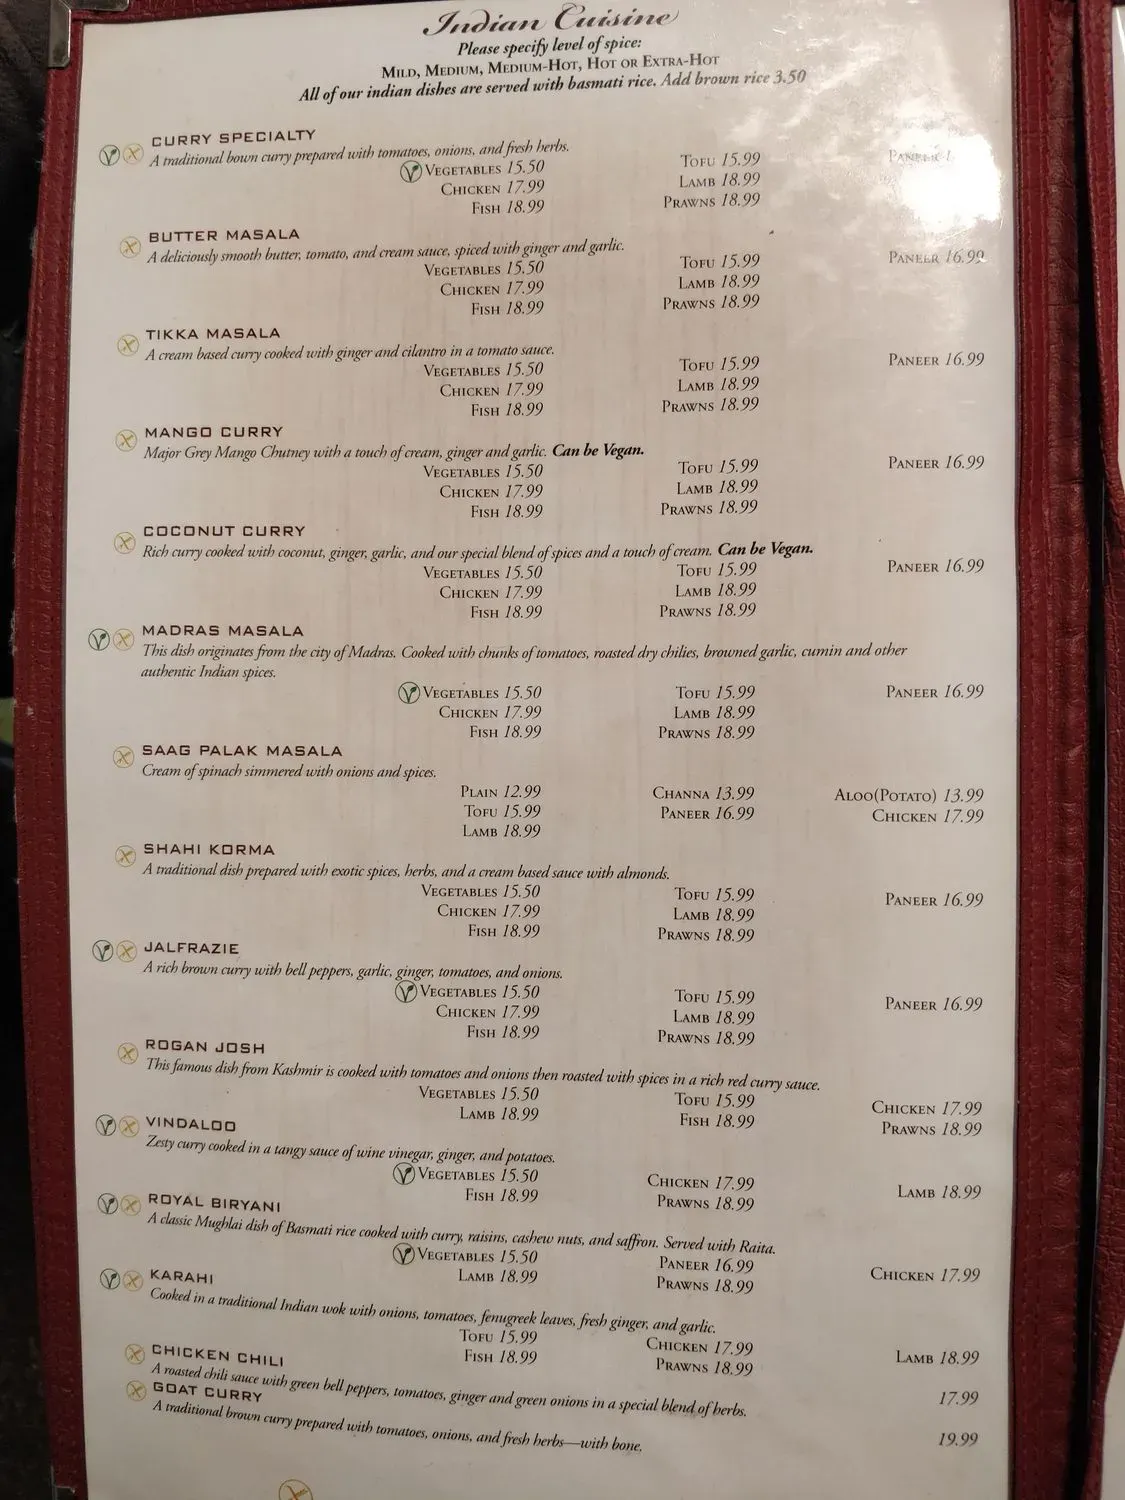 Indian Cuisine
Please specify level of spice:
MILD, MEDIUM, MEDIUM-HOT, HOT OR EXTRA-HOT
All of our indian dishes are served with basmati rice. Add brown rice 3.50
CURRY SPECIALTY
A traditional bown curry prepared with tomatoes, onions, and fresh herbs.
VEGETABLES 15.50 TOFU 15.99 PANEER
CHICKEN 17.99 LAMB 18.99
FISH 18.99 PRAWNS 18.99
BUTTER MASALA
A deliciously smooth butter, tomato, and cream sauce, spiced with ginger and garlic.
VEGETABLES 15.50 TOFU 15.99 PANEER 16.99
CHICKEN 17.99 LAMB 18.99
FISH 18.99 PRAWNS 18.99
TIKKA MASALA
A cream based curry cooked with ginger and cilantro in a tomato sauce.
VEGETABLES 15.50 TOFU 15.99 PANEER 16.99
CHICKEN 17.99 LAMB 18.99
FISH 18.99 PRAWNS 18.99
MANGO CURRY
Major Grey Mango Chutney with a touch of cream, ginger and garlic. Can be Vegan.
VEGETABLES 15.50 TOFU 15.99 PANEER 16.99
CHICKEN 17.99 LAMB 18.99
FISH 18.99 PRAWNS 18.99
COCONUT CURRY
Rich curry cooked with coconut, ginger, garlic, and our special blend of spices and a touch of cream. Can be Vegan.
VEGETABLES 15.50 TOFU 15.99 PANEER 16.99
CHICKEN 17.99 LAMB 18.99
FISH 18.99 PRAWNS 18.99
MADRAS MASALA
This dish originates from the city of Madras. Cooked with chunks of tomatoes, roasted dry chilies, browned garlic, cumin and other
authentic Indian spices.
VEGETABLES 15.50 TOFU 15.99 PANEER 16.99
CHICKEN 17.99 LAMB 18.99
FISH 18.99 PRAWNS 18.99
SAAG PALAK MASALA
Cream of spinach simmered with onions and spices.
PLAIN 12.99 CHANNA 13.99 ALOO(POTATO) 13.99
TOFU 15.99 PANEER 16.99 CHICKEN 17.99
LAMB 18.99
SHAHI KORMA
A traditional dish prepared with exotic spices, herbs, and a cream based sauce with almonds.
VEGETABLES 15.50 TOFU 15.99 PANEER 16.99
CHICKEN 17.99 LAMB 18.99
FISH 18.99 PRAWNS 18.99
JALFRAZIE
A rich brown curry with bell peppers, garlic, ginger, tomatoes, and onions.
VEGETABLES 15.50 TOFU 15.99 PANEER 16.99
CHICKEN 17.99 LAMB 18.99
FISH 18.99 PRAWNS 18.99
ROGAN JOSH
This famous dish from Kashmir is cooked with tomatoes and onions then roasted with spices in a rich red curry sauce.
VEGETABLES 15.50 TOFU 15.99 CHICKEN 17.99
LAMB 18.99 FISH 18.99 PRAWNS 18.99
VINDALOO
Zesty curry cooked in a tangy sauce of wine vinegar, ginger, and potatoes.
VEGETABLES 15.50 CHICKEN 17.99 LAMB 18.99
FISH 18.99 PRAWNS 18.99
ROYAL BIRYANI
A classic Mughlai dish of Basmati rice cooked with curry, raisins, cashew nuts, and saffron. Served with Raita.
VEGETABLES 15.50 PANEER 16.99 CHICKEN 17.99
LAMB 18.99 PRAWNS 18.99
KARAHI
Cooked in a traditional Indian wok with onions, tomatoes, fenugreek leaves, fresh ginger, and garlic.
TOFU 15.99 CHICKEN 17.99 LAMB 18.99
FISH 18.99 PRAWNS 18.99
CHICKEN CHILI
A roasted chili sauce with green bell peppers, tomatoes, ginger and green onions in a special blend of herbs. 17.99
GOAT CURRY
A traditional brown curry prepared with tomatoes, onions, and fresh herbs—with bone. 19.99